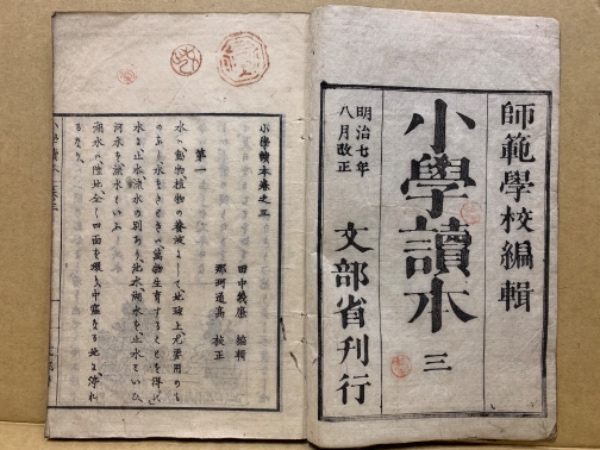 師範學校編輯
小學讀本 三
明治七年
八月改正
文部省刊行
小學讀本卷之三
田中義廉 編輯
那珂通高 校正
第一
水ハ、動物植物の養液よして、地球上、尤要用のも
のあり、水なきときハ、萬物生育することを得べ
水よ、止水、流水の別あり、池水、湖水を、止水といひ、
河水を、流水といふ
湖水ハ、陸地、全く四面を環り、中窪なる地よ、渟れ